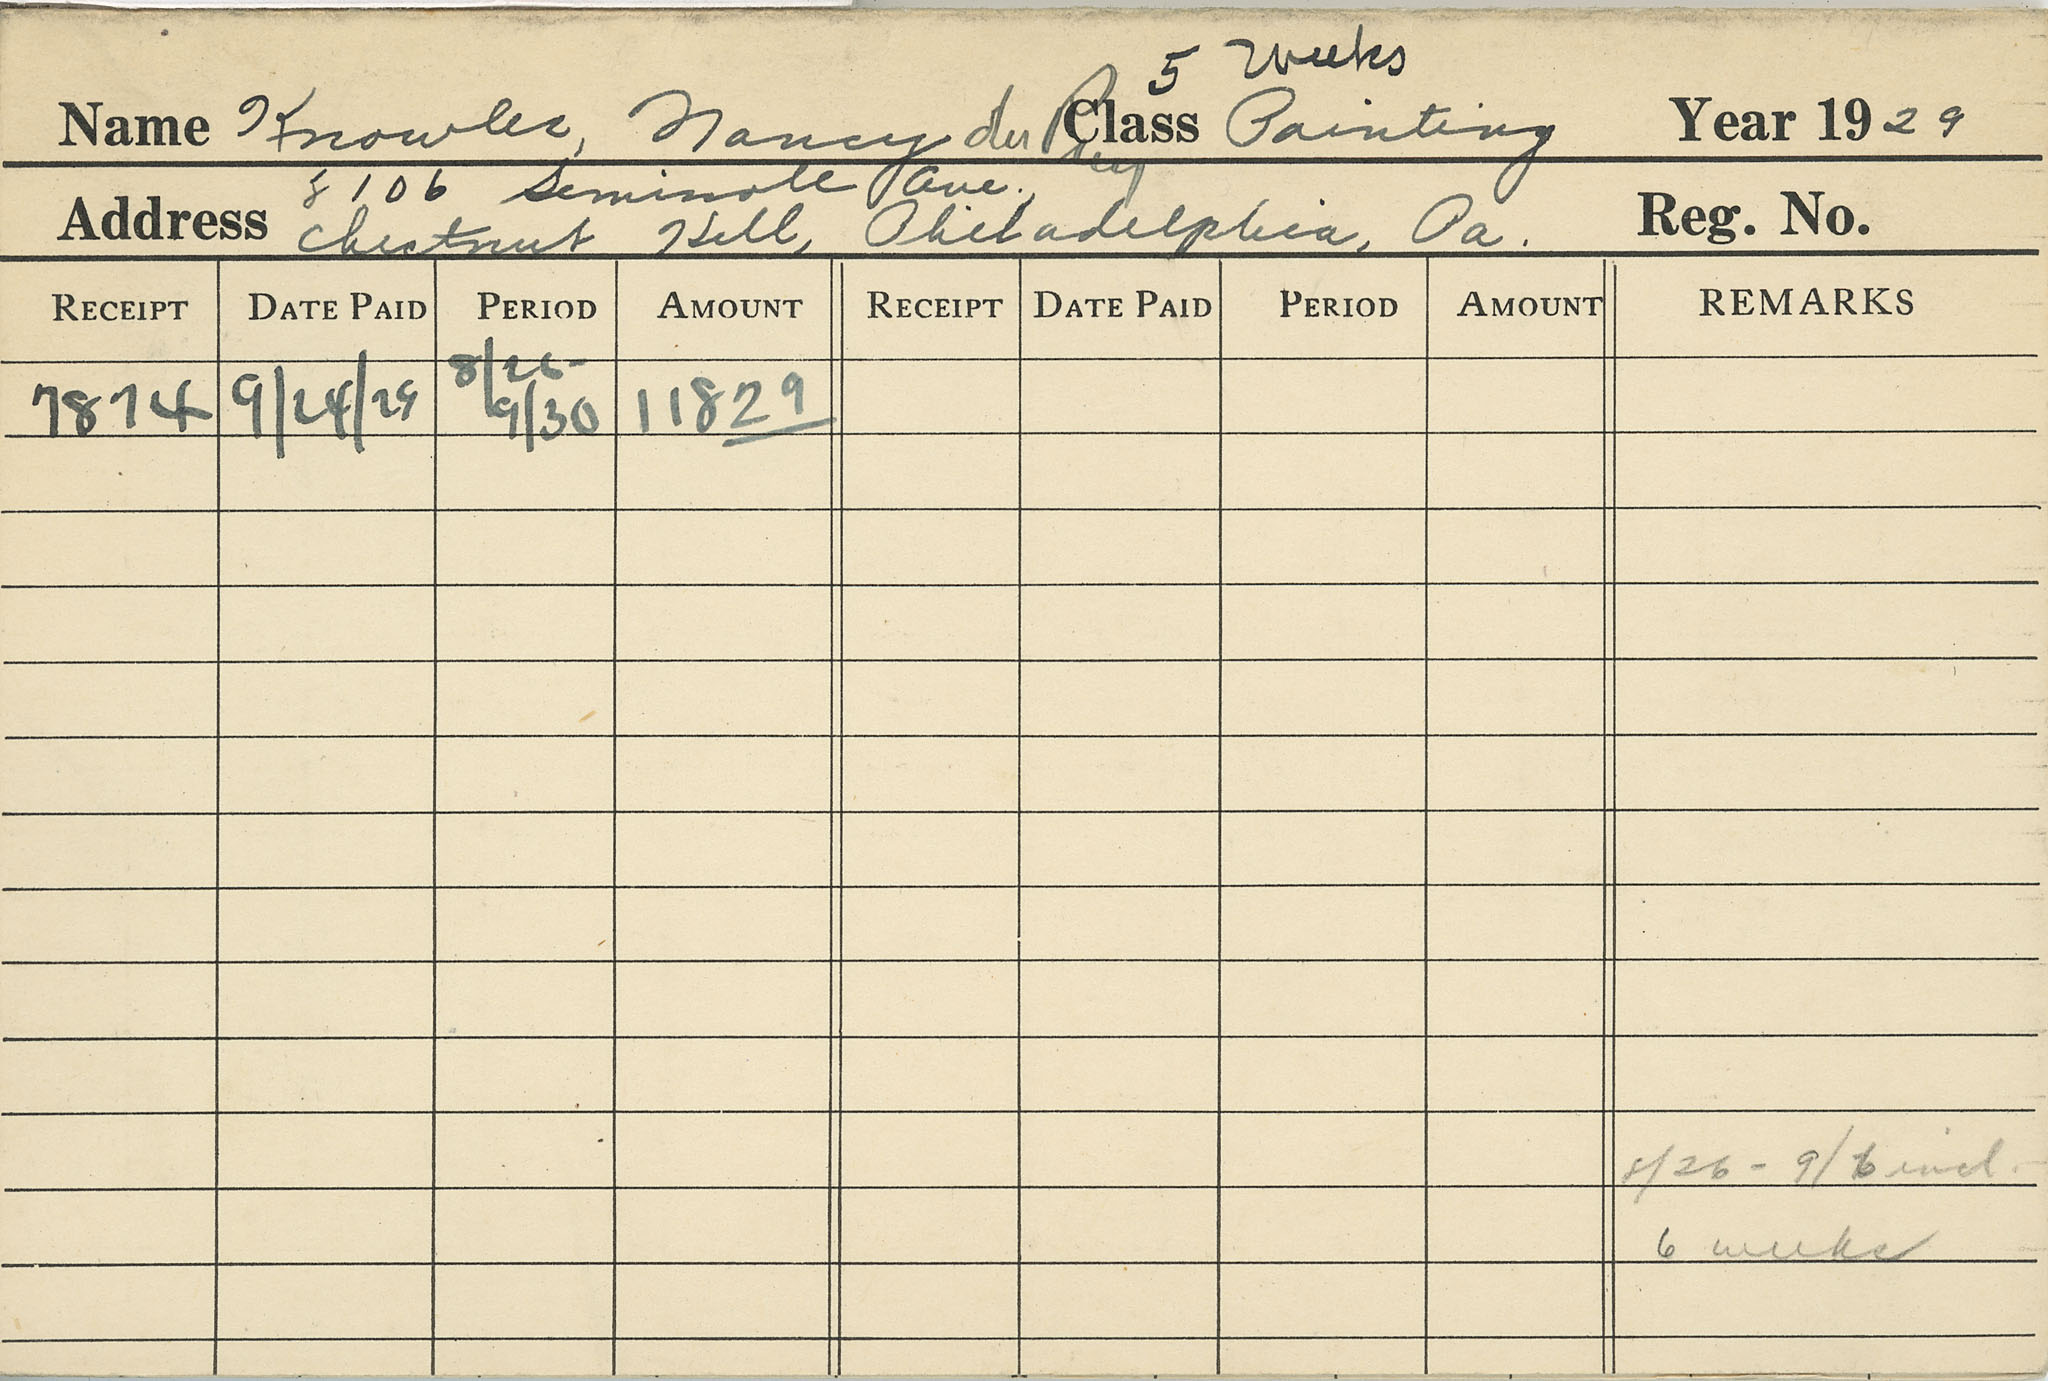 5 Weeks
Name Knowles, Nancy du Puy Class Painting Year 1929
8106 Seminole Ave.,
Address Chestnut Hill, Philadelphia, Pa. Reg. No.
RECEIPT DATE PAID PERIOD AMOUNT RECEIPT DATE PAID PERIOD AMOUNT REMARKS
8/26-
7874 9/24/29 9/30 118 29
8/26 - 9/6 incl.
6 weeks